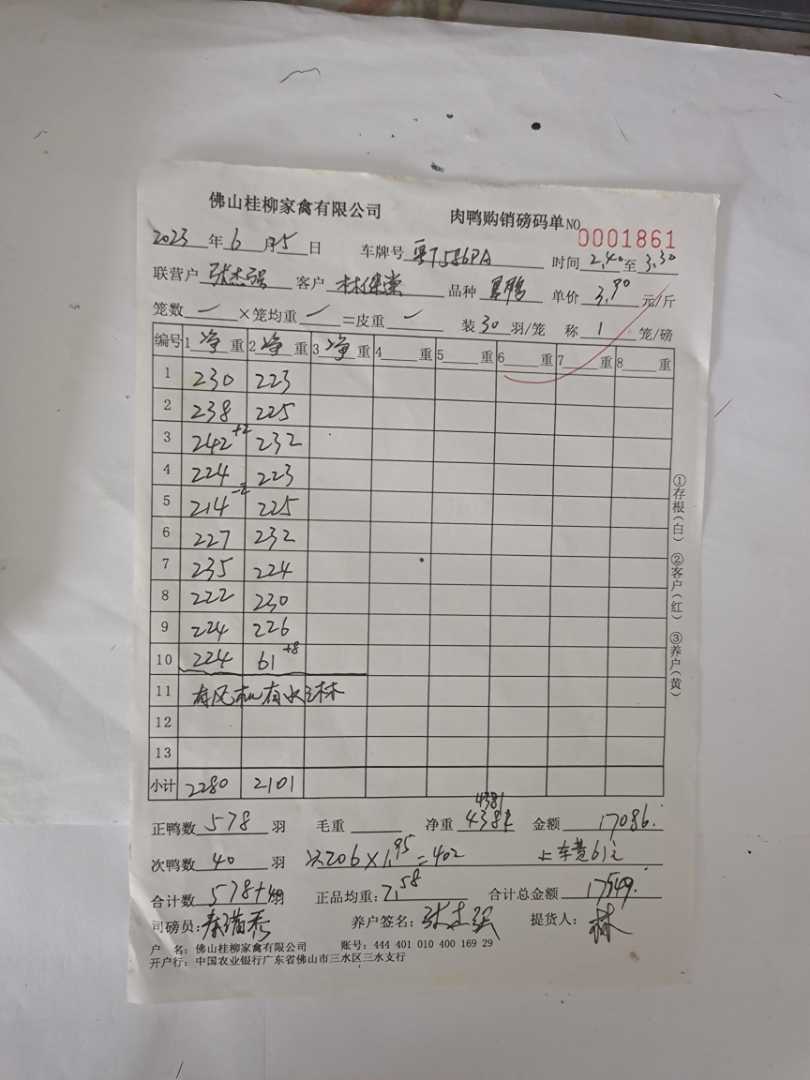 佛山桂柳家禽有限公司 肉鸭购销磅码单NO 0001861
2023年6月5日 车牌号 时间2.40至3.30
联营户张志强 客户林保棠 品种 单价3.90元/斤
笼数一×笼均重一=皮重一 装30羽/笼 称1笼/磅
编号 1净重 2净重 3净重 4重 5重 6重 7重 8重
1 230 223
2 238 225
3 242+2 232
4 224 223
5 214-2 225
6 227 232
7 235 224
8 222 230
9 224 226
10 224 61+8
11 有风机有水
12
13
小计 2280 2101
4381
正鸭数578羽 毛重 净重 金额17086.
次鸭数40羽 次206×1.95=402 上车费61元
合计数578+40羽 正品均重:7.58 合计总金额17549.
司磅员: 养户签名:张志强 提货人:林
户 名:佛山桂柳家禽有限公司 账号:444 401 010 400 169 29
开户行:中国农业银行广东省佛山市三水区三水支行
①存根(白) ②客户(红) ③养户(黄)